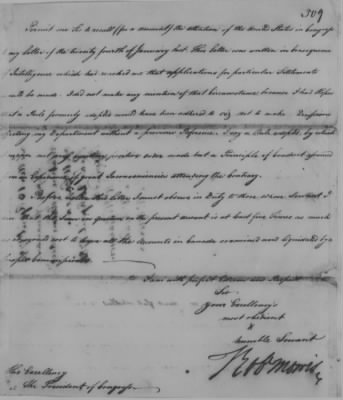 309
Permit me Sir to recall (for a moment) the attention of the United States in Congress
my Letter of the twenty fourth of January last. This Letter was written in consequence
Intelligence which had reached me that applications for particular Settlements
will be made. I did not make any mention of that Circumstance because I had
a Rule formerly adopted would have been adhered to viz not to make Decisions
my Department without a previous Reference. I say a Rule adopted, by which
not any order made but a Principle of Conduct
Experience of great Inconveniences attending the Contrary.
Before this Letter I must observe in Duty to those whose Servant I
that the Sum in question on the present account is at least five Times as much
not to have all the Accounts in Canada examined and liquidated by a
I am with perfect Esteem and Respect
Sir
your Excellency's
most obedient
&
humble Servant
Rob Morris
His Excellency
The President of Congress